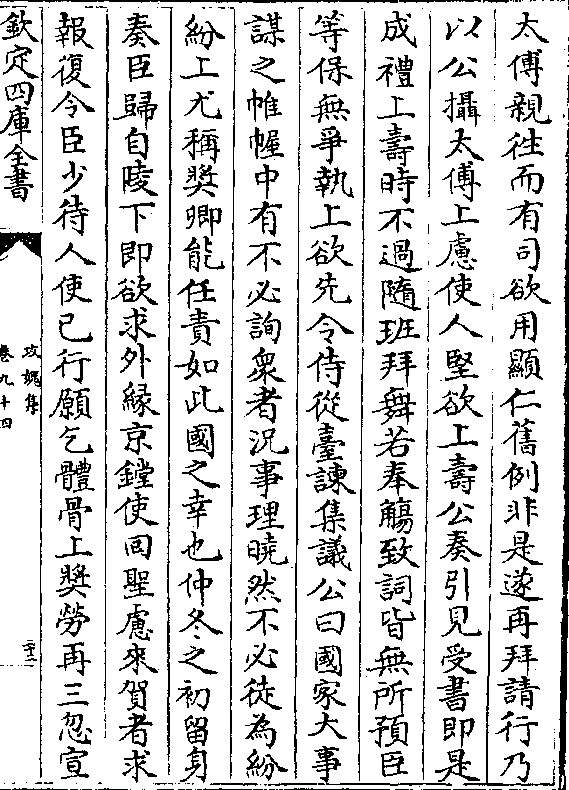 太傅親往而有司欲用顯仁舊例非是遂再拜請行乃
以公攝太傅上慮使人堅欲上壽公奏引見受書即是
成禮上壽時不過隨班拜舞若奉觴致詞皆無所預臣
等保無爭執上欲先令侍從臺諫集議公曰國家大事
謀之帷幄中有不必詢衆者況事理曉然不必徒為紛
紛上尤稱奬卿能任責如此國之幸也仲冬之初留身
奏臣歸自陵下即欲求外緣京鏜使回聖慮來賀者求
報復令臣少待人使已行願乞體骨上奬勞再三忽宣
欽定四庫全書
攻媿集
卷九十四
二十二